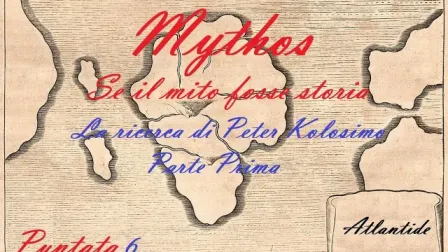 Mythos
Se il mito fosse storia
La ricerca di Peter Kolosimo
Parte Prima
Atlantide
Puntata 6